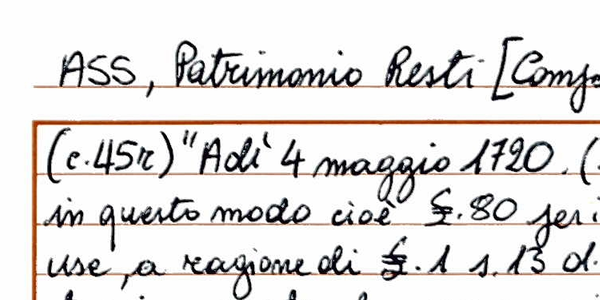 ASS, Patrimonio Resti [Comp
(c.45r) "Adì 4 maggio 1720. (
in questo modo cioè £.80 per i
use, a ragione di £.1 s.13 d.